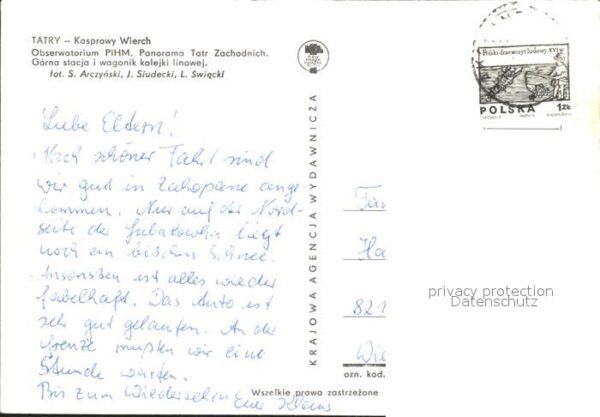 TATRY – Kasprowy Wierch
Obserwatorium PIHM. Panorama Tatr Zachodnich.
Górna stacja i wagonik kolejki linowej.
fot. S. Arczyński, J. Siudecki, L. Święcki
Liebe Eltern!
Nach schöner Fahrt sind
wir gut in Zakopane ange
kommen. Nur auf der Nord-
seite der Gubałowka liegt
noch ein bischen Schnee.
Ansonsten ist alles wieder
fabelhaft. Das Auto ist
sehr gut gelaufen. An der
Grenze mußten wir eine
Stunde warten.
Bis zum Wiedersehen Euer
KRAJOWA AGENCJA WYDAWNICZA
Polski drzeworyt ludowy XVI w.
POLSKA 1ZŁ
Ha
821
privacy protection
Datenschutz
ozn. kod.
Wszelkie prawa zastrzeżone